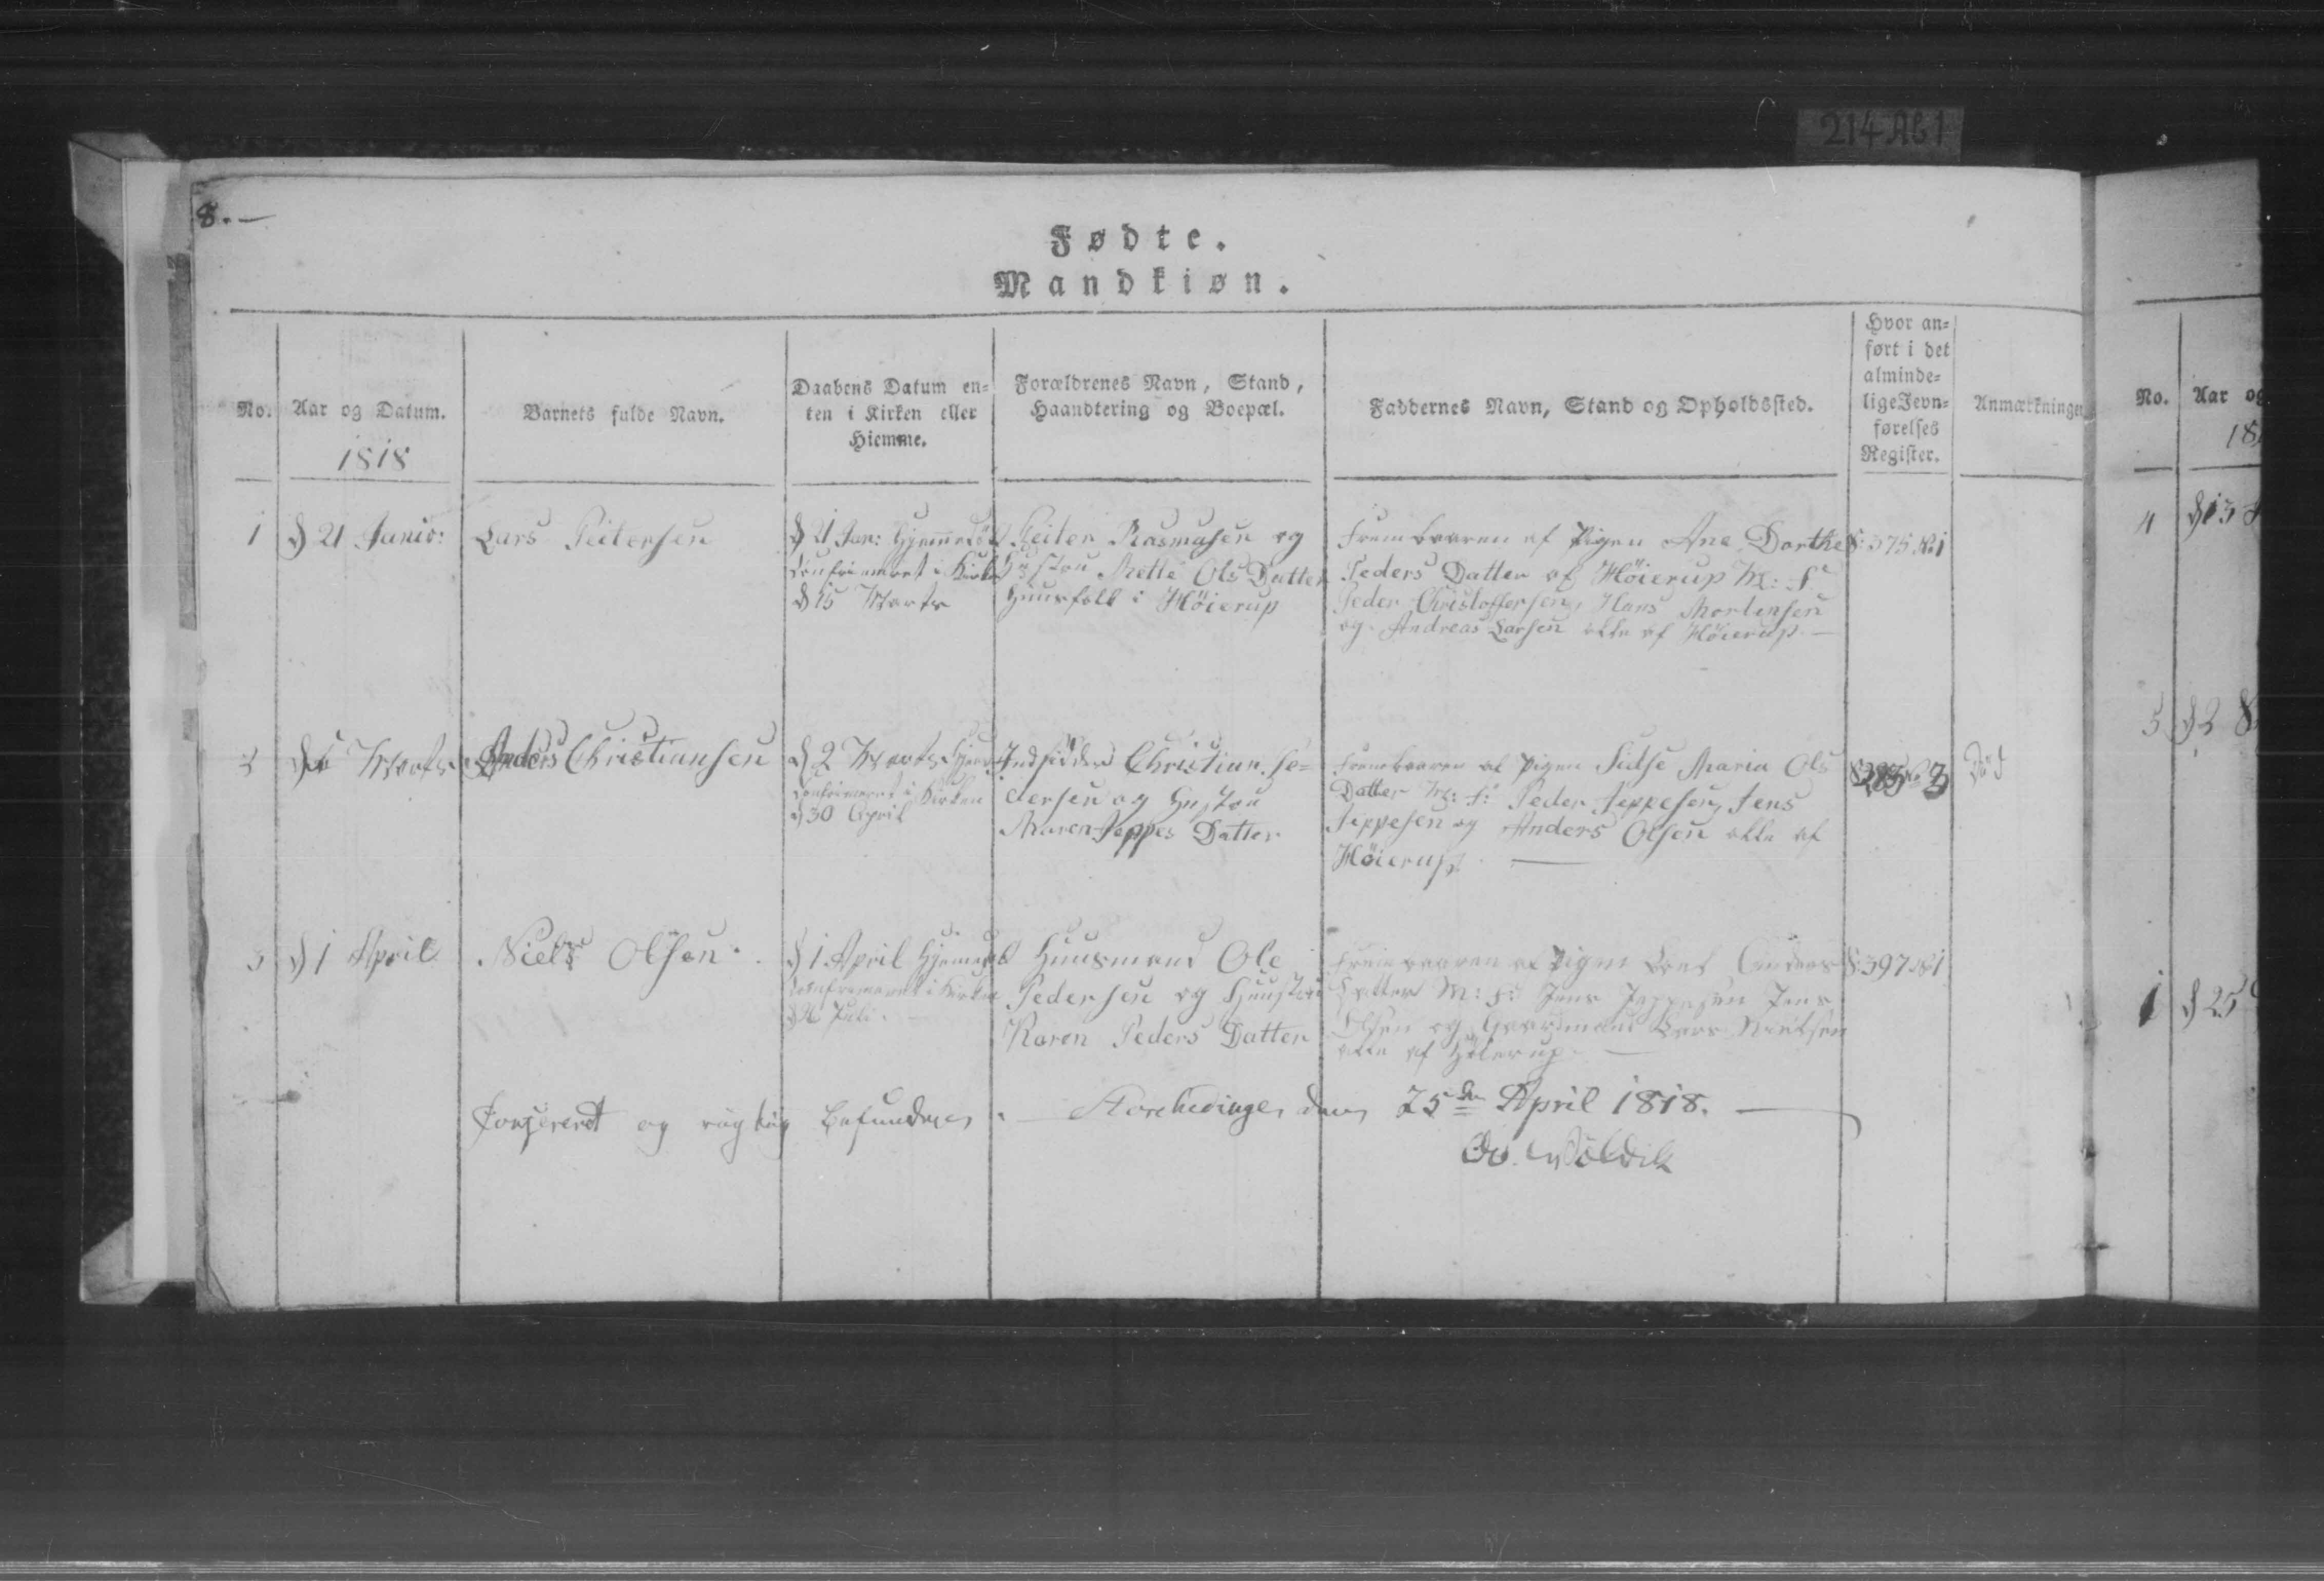 214 Ab 1
8.—
Fødte.
Mandkiøn.
No.
Aar og Datum.
1818
Barnets fulde Navn.
Daabens Datum en=
ten i Kirken eller
Hiemme.
Forældrenes Navn, Stand,
Haandtering og Boepæl.
Faddernes Navn, Stand og Opholdssted.
Hvor an=
ført i det
alminde=
lige Jevn=
førelses
Register.
Anmærkninger
1
21 Janio:
Lars Peitersen
21 Jan: Hjemmedöbt
Confirmeret i Kirken
15 Marts
Peiter Rasmusen og
Hustru Mette Ols Datter
Huusfolk i Höierup
Frembaaren af Pigen Ane Dorthe
Peders Datter af Höierup M: F:
Peder Christoffersen, Hans Mortensen
og Andreas Larsen alle af Höierup —
S: 375 No 1
2
Marts
Anders Christiansen
2 Marts
Confirmeret i Kirken
30 April
Indsidder Christian Pe=
dersen og Hustru
Maren Jeppes Datter
Frembaaren af Pigen Sidse Maria Ols
Datter M: F: Peder Jeppesen, Jens
Jeppesen og Anders Olsen alle af
Höierup. —
Död
3
1 April
Niels Olsen.
1 April Hjemmedöbt
Confirmeret i Kirken
Juli.
Huusmand Ole
Pedersen og Huustru
Karen Peders Datter
Frembaaren af Pigen Anders
Datter M: F: Jens Jeppesen Jens
Olsen og Gaardmand Lars Nielsen
alle af Höierup. —
S: 397 No 1
Confereret og rigtig befunden. — Storehedinge den 25de April 1818. —
No.
Aar og
18
4
13
5
2
1
25